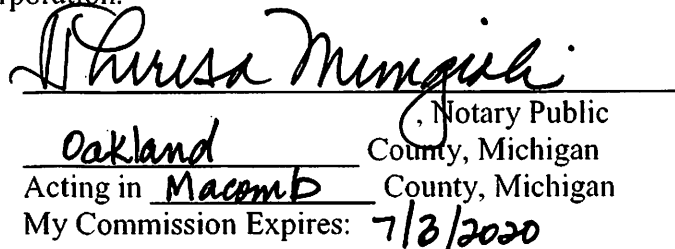 rporation.
Theresa
, Notary Public
Oakland County, Michigan
Acting in Macomb County, Michigan
My Commission Expires: 7/3/2020